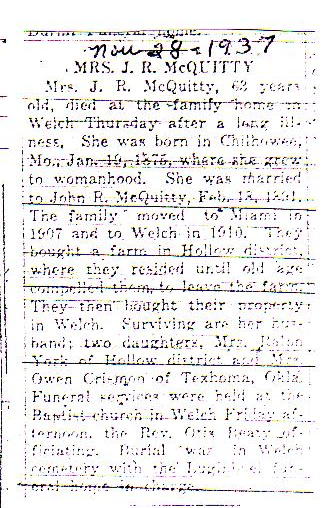 Burial Funeral home.
Nov 28-1937
MRS. J. R. McQUITTY
Mrs. J. R. McQuitty, 62 years
old, died at the family home in
Welch Thursday after a long ill-
ness. She was born in Chilhowee,
Mo., Jan. 19, 1875, where she grew
to womanhood. She was married
to John R. McQuitty, Feb. 18, 1891.
The family moved to Miami in
1907 and to Welch in 1910. They
bought a farm in Hollow district,
where they resided until old age
compelled them to leave the farm.
They then bought their property
in Welch. Surviving are her hus-
band; two daughters, Mrs.
York of Hollow district and Mrs.
Owen Crismon of Texhoma, Okla.
Funeral services were held at the
Baptist church in Welch Friday af-
ternoon, the Rev. Otis Beaty of-
ficiating. Burial was in Welch
cemetery with the fun-
eral home in charge.